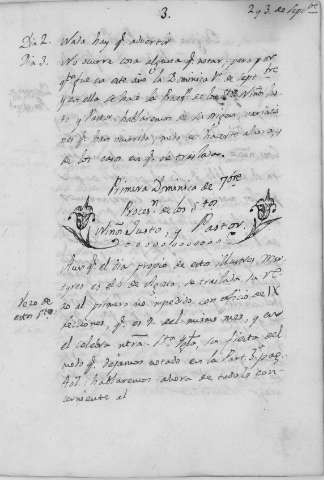 3.
2 y 3 de Sept.bre
Dia 2. Nada hay q.e advertir
Dia 3. No ocurre cosa alguna q.e notar; pero por
q.e fue en este año la Dominica 1.a de Sept.bre
y en ella se hace la Proces.n de los S.tos Niños Jus
to, y Pastor, hablaremos de su origen, variacio
nes q.e han ocurrido, modo de hacerse ahora, y
de los casos en q.e se traslada.
Primera Dominica de 7.bre
Proces.n de los S.tos
Niños Justo, y Pastor.
Aunq.e el dia propio de estos illustres Mar
tyres es el 6 de Agosto, se traslada su R.o
al primero no impedido con oficio de IX
lecciones, q.e es 7 del mismo mes, y en
el celebra ntra. S.ta Igla. su fiesta del
modo q.e dejamos notado en la Part.
hablaremos ahora de todo lo con
cerniente al
Rezo de
estos S.tos